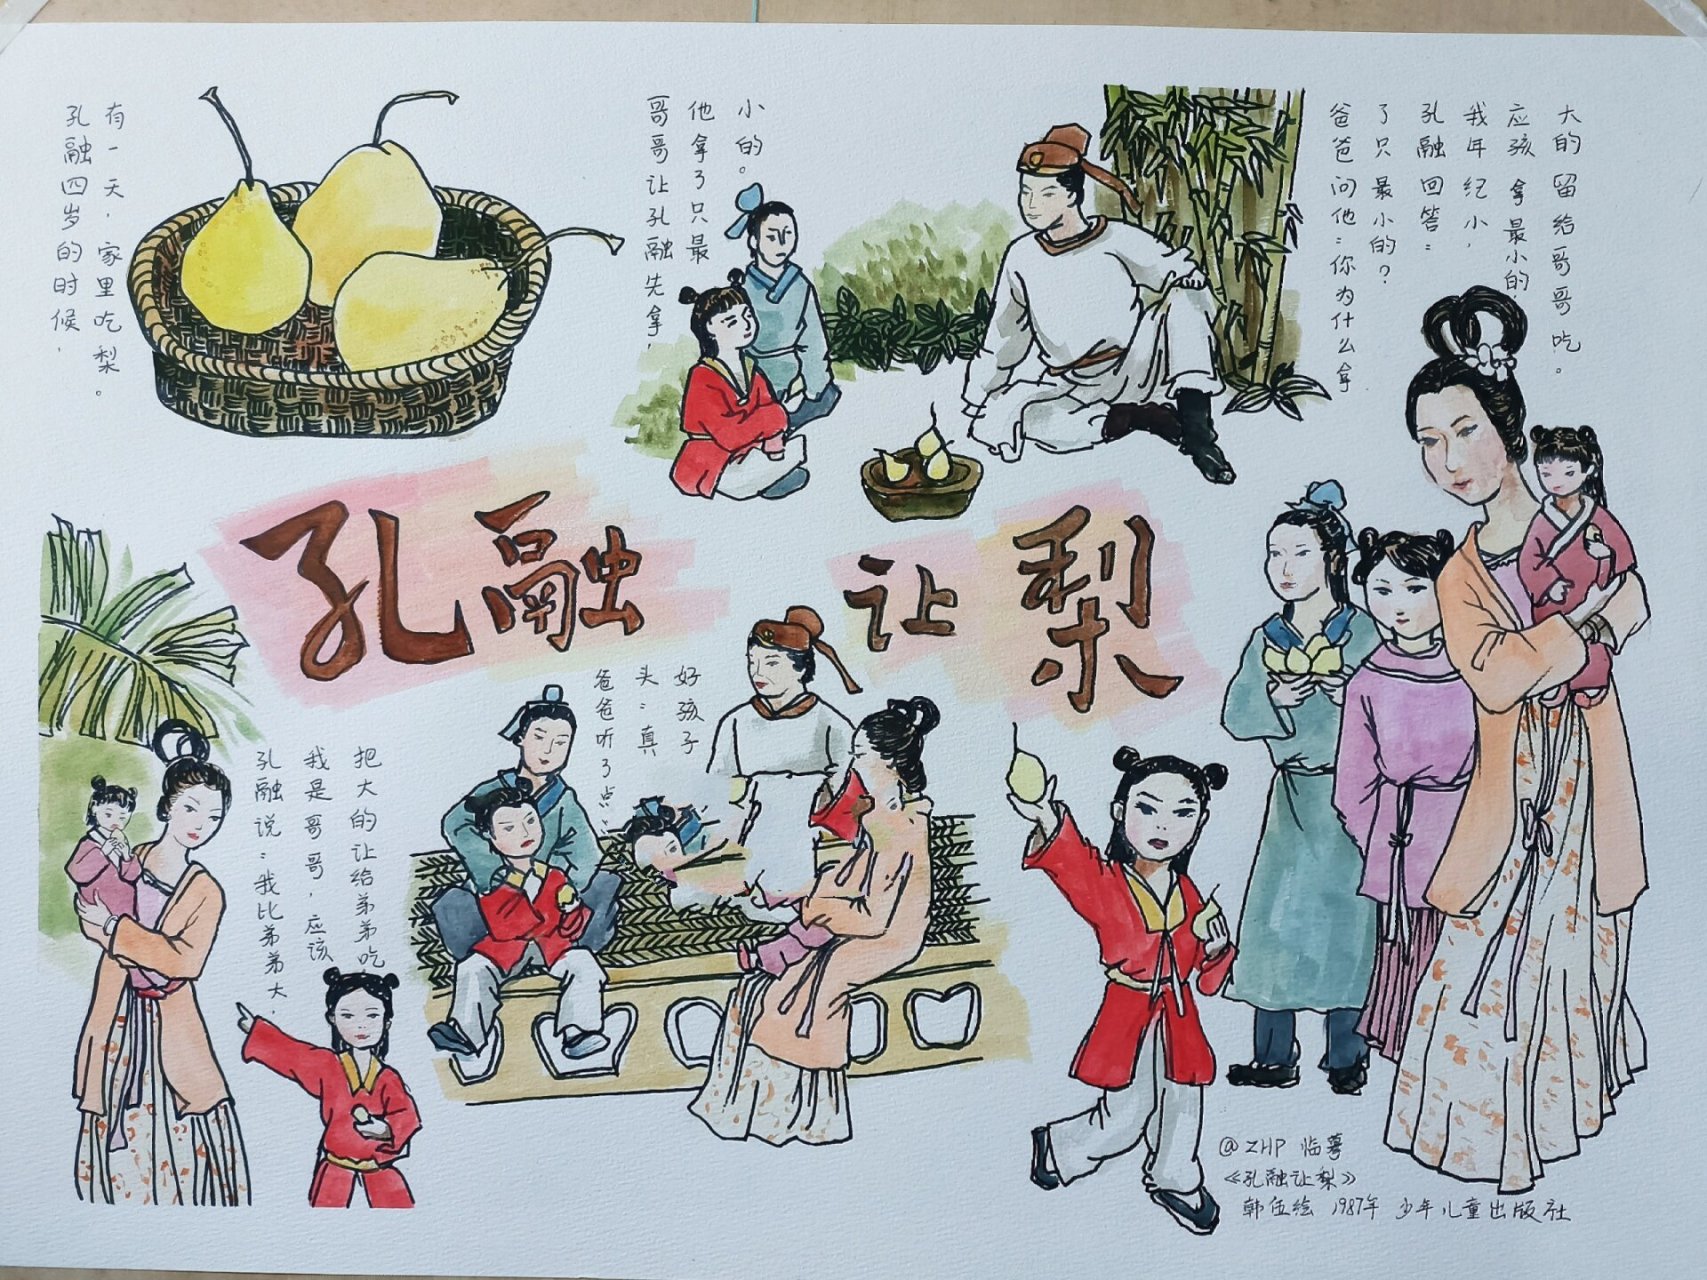 孔融四岁的时候，
有一天，家里吃梨。
哥哥让孔融先拿，
他拿了只最
小的。
爸爸问他：你为什么拿
了只最小的？
孔融回答：
我年纪小，
应孩拿最小的，
大的留给哥哥吃。
孔融让梨
孔融说：我比弟弟大，
我是哥哥，应该
把大的让给弟弟吃
爸爸听了点
头：真
好孩子
@ZHP 临摹
《孔融让梨》
韩伍绘 1987年 少年儿童出版社